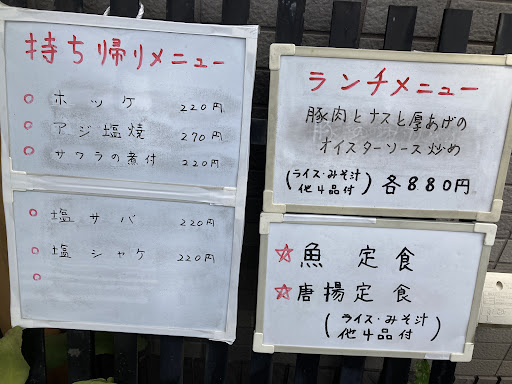 持ち帰りメニュー
○ ホッケ 220円
○ アジ塩焼 270円
○ サワラの煮付 220円
○ 塩サバ 220円
○ 塩シャケ 220円
○
ランチメニュー
豚肉とナスと厚あげの
オイスターソース炒め
(ライス・みそ汁
他4品付) 各880円
☆ 魚定食
☆ 唐揚定食
(ライス・みそ汁
他4品付)